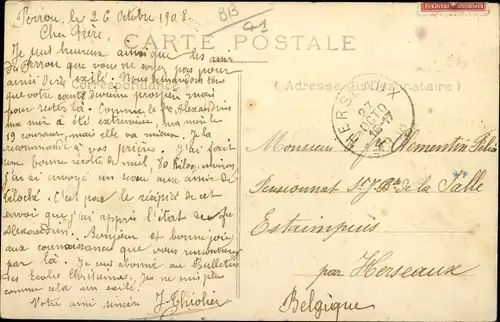 Perrou, le 26 Octobre 1908.
Cher frère,
Je suis heureux ainsi que les amis
du Perrou que vous ne soyez pas pour
ainsi dire exilé. Nous demandons tous
que votre santé devienne prospère
pour rester là. Comme le fre Alexandrin
ma mère a été extremisée, ma mère le
19 courant, mais elle va mieux. Je la
recommande à vos prières. J'ai fait
une bonne récolte de miel, 80 kilos environ,
j'ai envoyé un seau aux amis de
C'est par le récépissé de cet
envoi que j'ai appris l'état de fre
Alexandrin. Bonjour et bonne joie
aux connaissances que vous rencontrerez
par là. Je me suis abonné au Bulletin
des Ecoles Chrétiennes. Je ne suis plus
comme cela un exilé.
Votre ami sincère J. Thiolier
BB
91
CARTE POSTALE
Correspondance
(Adresse du Destinataire)
HERSEAUX
27
OCTO
16-17
1908
Monsieur fre Clementin
Pensionnat St J. Bte de la Salle
Estaimpuis
par Herseaux
Belgique